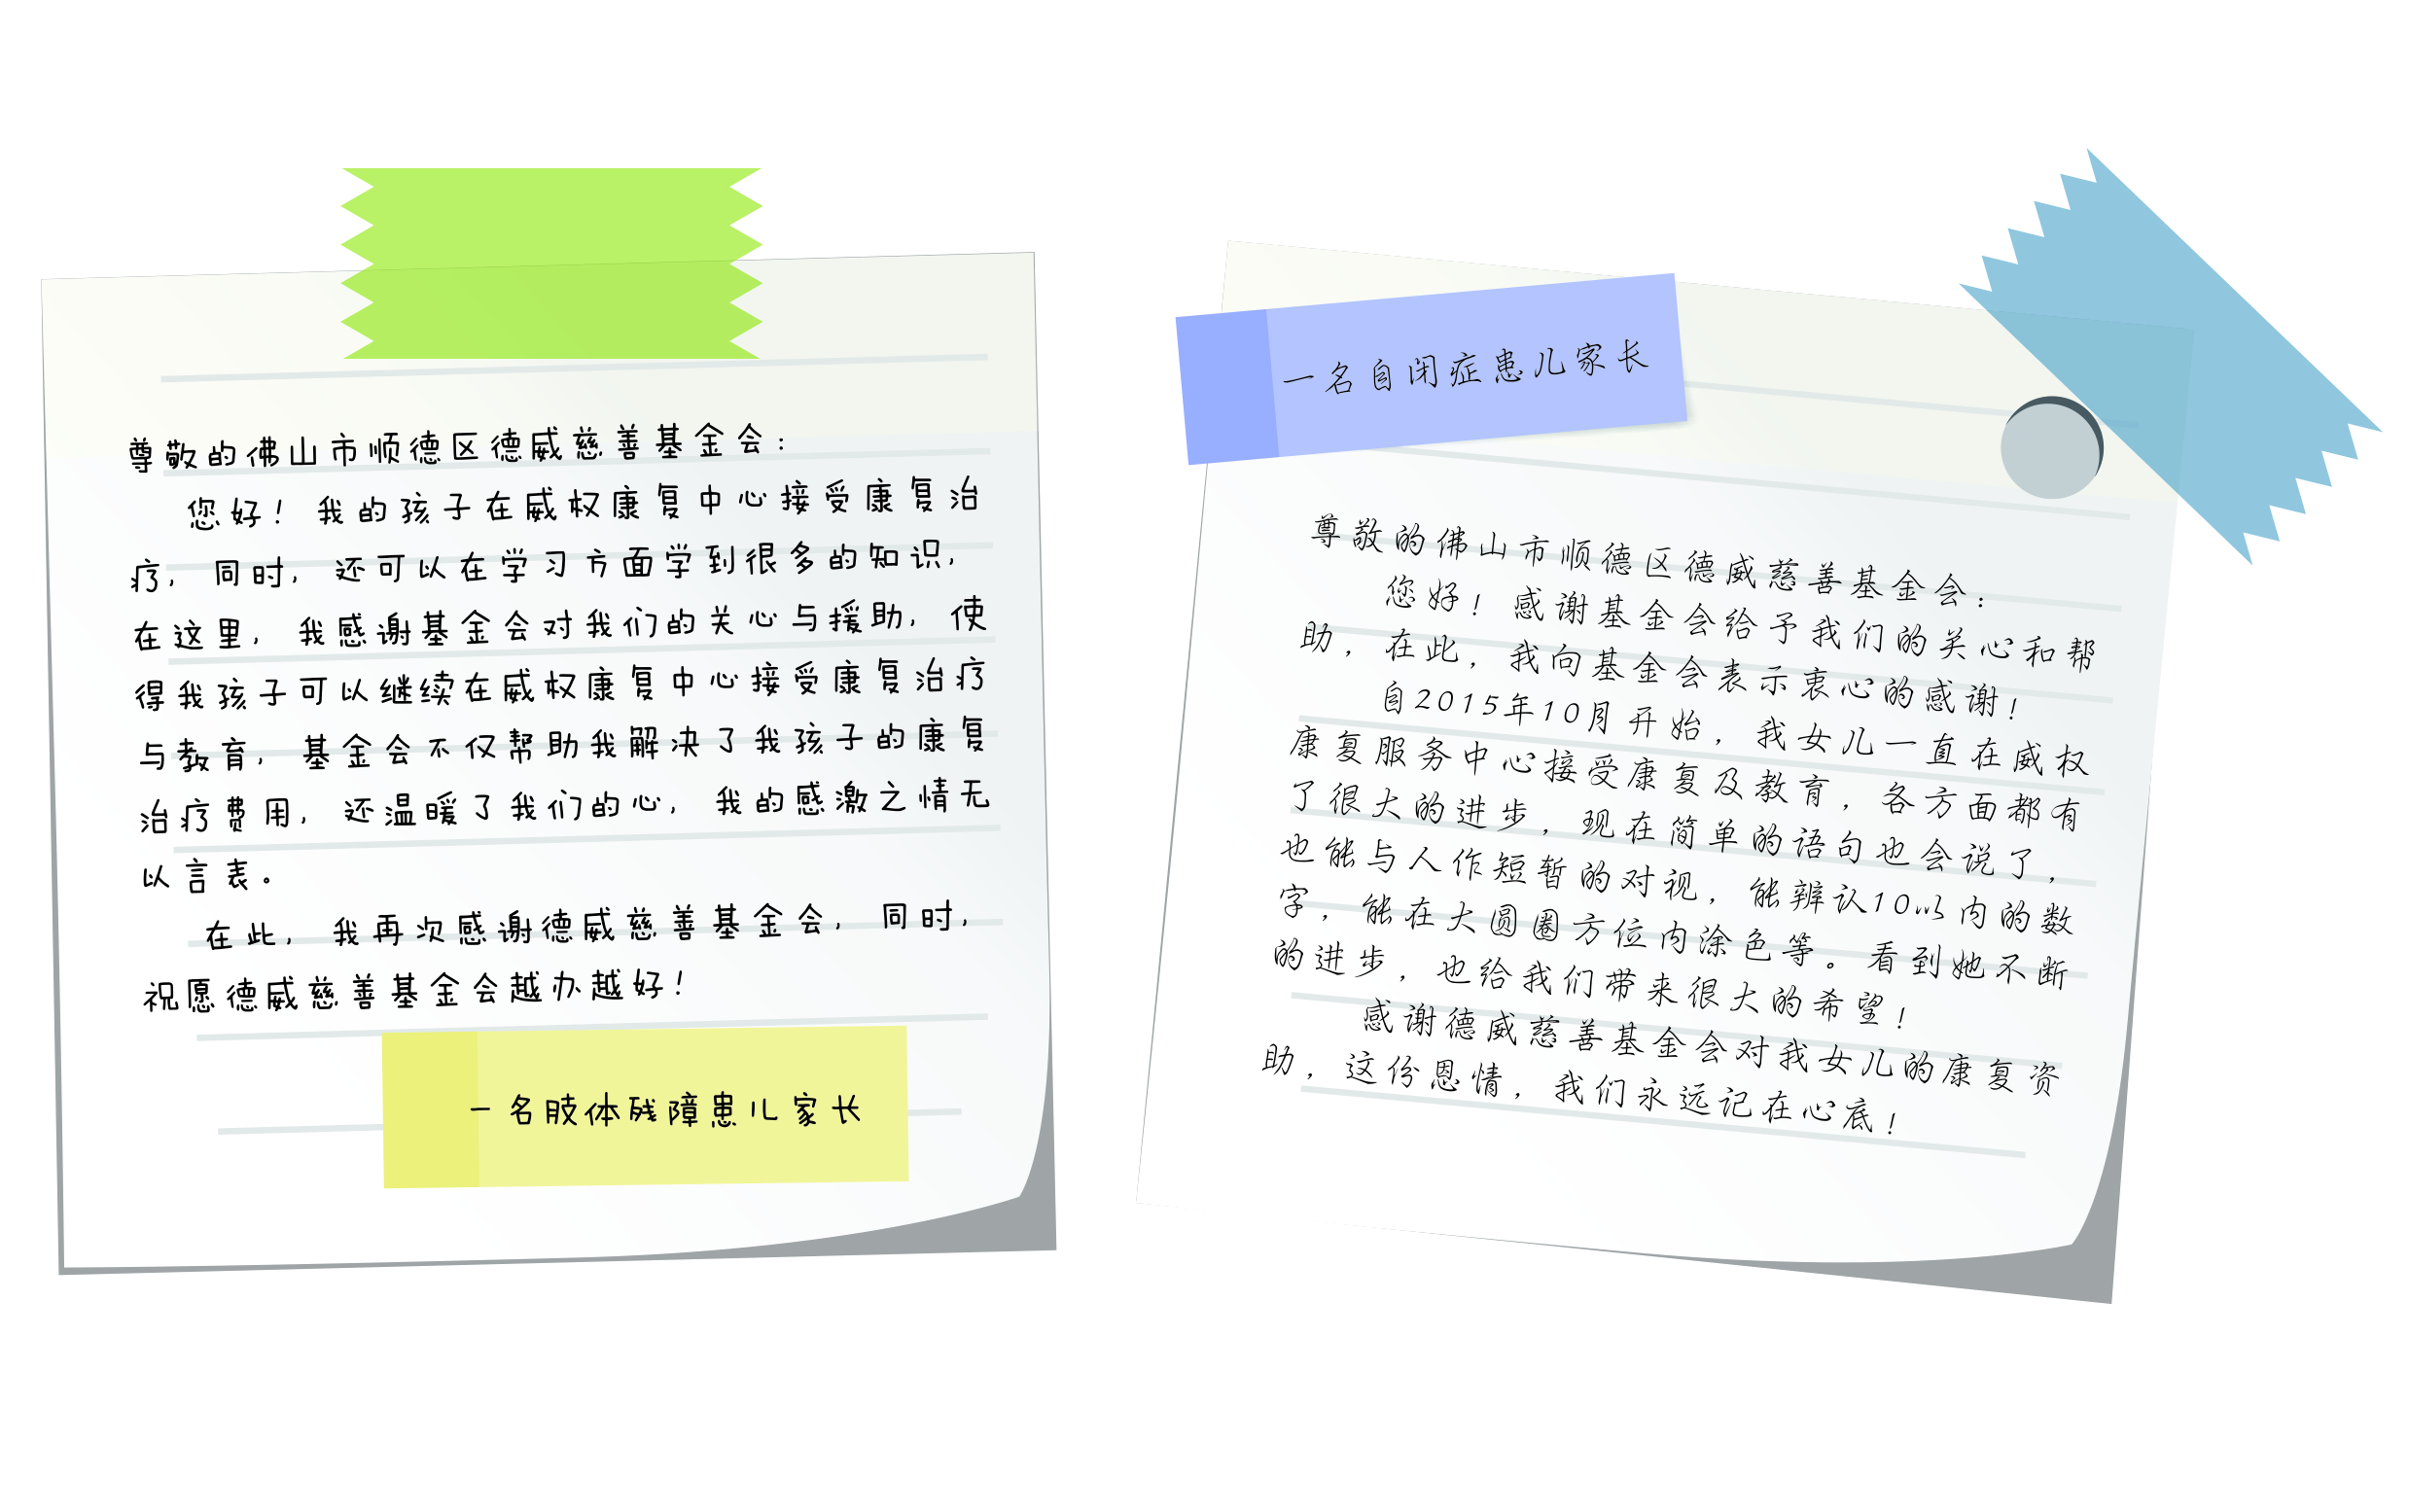 尊敬的佛山市顺德区德威慈善基金会：
您好！我的孩子在威权康复中心接受康复治
疗，同时，还可以在学习方面学到很多的知识，
在这里，我感谢基金会对我们的关心与援助，使
得我孩子可以继续在威权康复中心接受康复治疗
与教育，基金会不仅帮助我解决了我孩子的康复
治疗费用，还温暖了我们的心，我的感激之情无
以言表。
在此，我再次感谢德威慈善基金会，同时，
祝愿德威慈善基金会越办越好！
一名肢体残障患儿家长
一名自闭症患儿家长
尊敬的佛山市顺德区德威慈善基金会：
您好！感谢基金会给予我们的关心和帮
助，在此，我向基金会表示衷心的感谢！
自2015年10月开始，我女儿一直在威权
康复服务中心接受康复及教育，各方面都有
了很大的进步，现在简单的语句也会说了，
也能与人作短暂的对视，能辨认10以内的数
字，能在大圆圈方位内涂色等。看到她不断
的进步，也给我们带来很大的希望！
感谢德威慈善基金会对我女儿的康复资
助，这份恩情，我们永远记在心底！